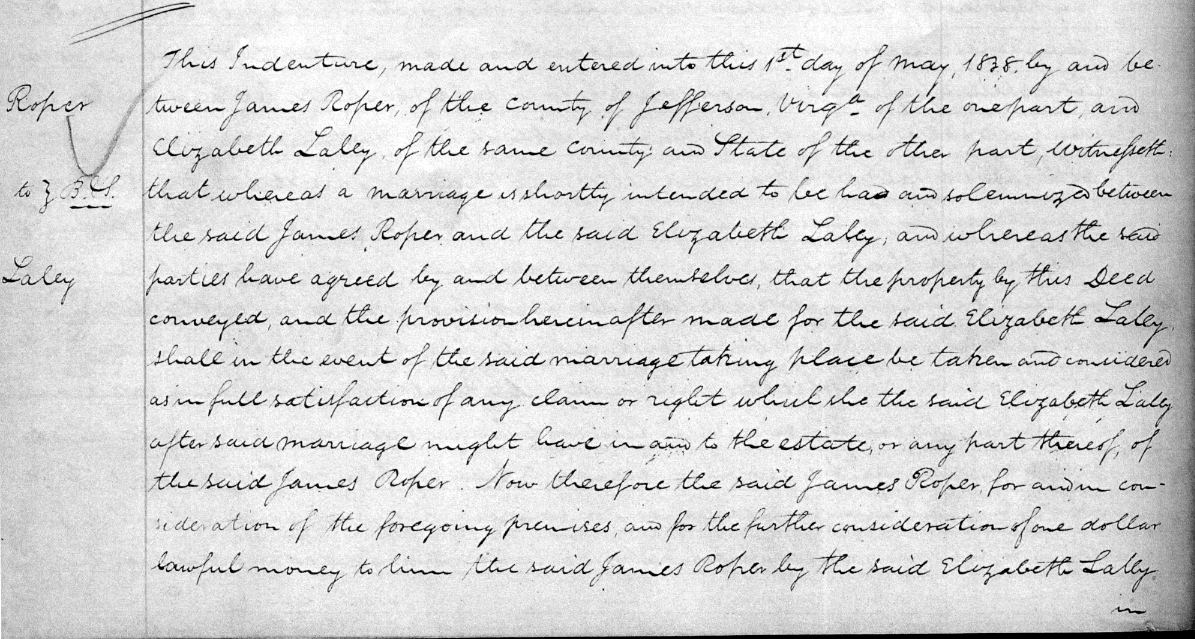 This Indenture, made and entered into this 1st day of May, 1838, by and be-
Roper
tween James Roper, of the County of Jefferson, Virga of the one part, and
Elizabeth Laley, of the same County and State of the other part, Witnesseth:
to } B.S.
that whereas a marriage is shortly intended to be had and solemnized between
the said James Roper and the said Elizabeth Laley, and whereas the said
Laley
parties have agreed by and between themselves, that the property by this Deed
conveyed, and the provision hereinafter made for the said Elizabeth Laley,
shall in the event of the said marriage taking place be taken and considered
as in full satisfaction of any claim or right which she the said Elizabeth Laley
after said marriage might have in and to the estate, or any part thereof, of
the said James Roper. Now therefore the said James Roper, for and in con-
sideration of the foregoing premises, and for the further consideration of one dollar
lawful money to him the said James Roper by the said Elizabeth Laley
in